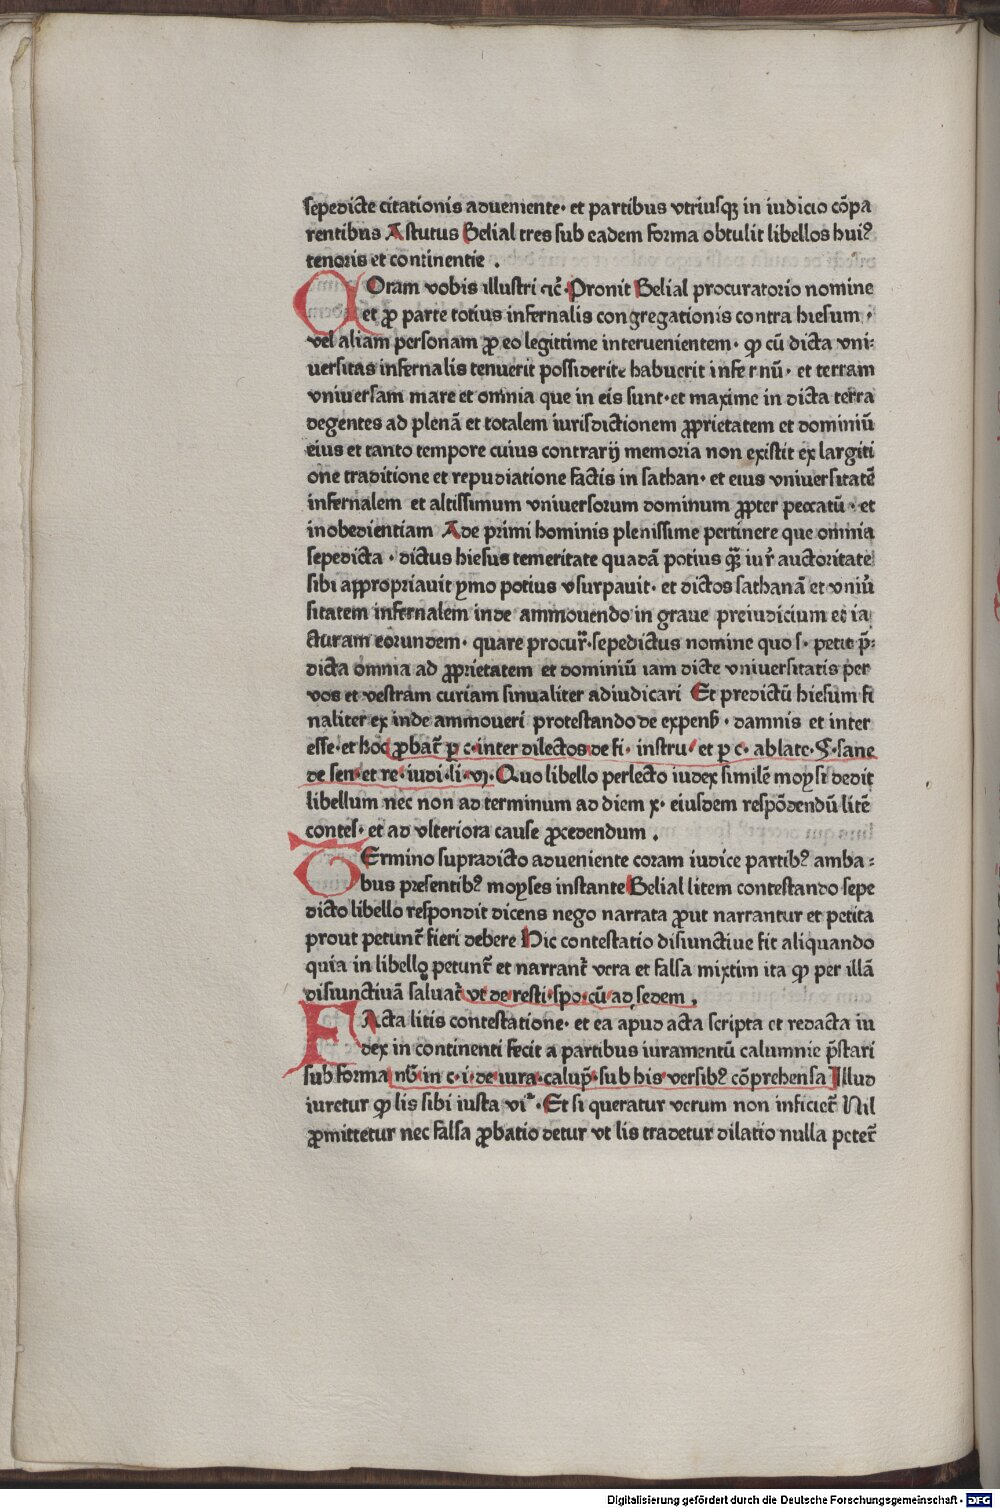 sepedicte citationis adueniente· et partibus vtriusqꝫ in iudicio cōpa
rentibus Astutus Belial tres sub eadem forma obtulit libellos huiꝰ
tenoris et continentie .
COram vobis illustri ⁊cē· Pronit Belial procuratorio nomine
et ꝓ parte totius infernalis congregationis contra hiesum ·
vel aliam personam ꝓ eo legittime interuenientem· ꝙ cū dicta vni⸗
uersitas infernalis tenuerit possiderit⁊ habuerit infernū· et terram
vniuersam mare et omnia que in eis sunt·et maxime in dicta terra
degentes ad plenā et totalem iurisdictionem ꝓprietatem et dominiū
eius et tanto tempore cuius contrarij memoria non existit ex largiti
one traditione et repudiatione factis in sathan· et eius vniuersitatē
infernalem et altissimum vniuersorum dominum ꝓpter peccatū · et
inobedientiam Ade primi hominis plenissime pertinere que omnia
sepedicta · dictus hiesus temeritate quadā potius qͣ̄ iur̄ auctoritate
sibi appropriauit ymo potius vsurpauit· et dictos sathanā et vniū
sitatem infernalem inde ammouendo in graue preiudicium et ia
cturam eorundem· quare procur̄·sepedictus nomine quo s· petit p̄⸗
dicta omnia ad ꝓprietatem et dominiū iam dicte vniuersitatis per
vos et vestram curiam sinualiter adiudicari Et predictū hiesum fi
naliter ex inde ammoueri protestando de expenß · damnis et inter
esse·et hoc ꝓbat̄ ꝑ c·inter dilectos de fi· instru· et ꝑ c· ablate·§·sane
de sen·et re·iudi·li·vj· Quo libello perlecto iudex similē moysi dedit
libellum nec non ad terminum ad diem x· eiusdem respōdendū litē
contes· et ad vlteriora cause ꝓcedendum .
TErmino supradicto adueniente coram iudice partibꝰ amba⸗
bus presentibꝰ moyses instante Belial litem contestando sepe
dicto libello respondit dicens nego narrata ꝓut narrantur et petita
prout petunt̄ fieri debere Hic contestatio disiunctiue fit aliquando
quia in libello petunt̄ et narrant̄ vera et falsa mixtim ita ꝙ per illā
disiunctiuā saluat̄ vt de resti·spo·cū ad sedem .
FActa litis contestatione· et ea apud acta scripta et redacta iu
dex in continenti fecit a partibus iuramentū calumnie p̄stari
sub forma nß in c·i·de iura·calup̄·sub his versibꝰ cōprehensa Illud
iuretur ꝙ lis sibi iusta vi͛· Et si queratur verum non inficiet̄ Nil
ꝓmittetur nec falsa ꝓbatio detur vt lis tradetur dilatio nulla petet̄
Digitalisierung gefördert durch die Deutsche Forschungsgemeinschaft - DFG